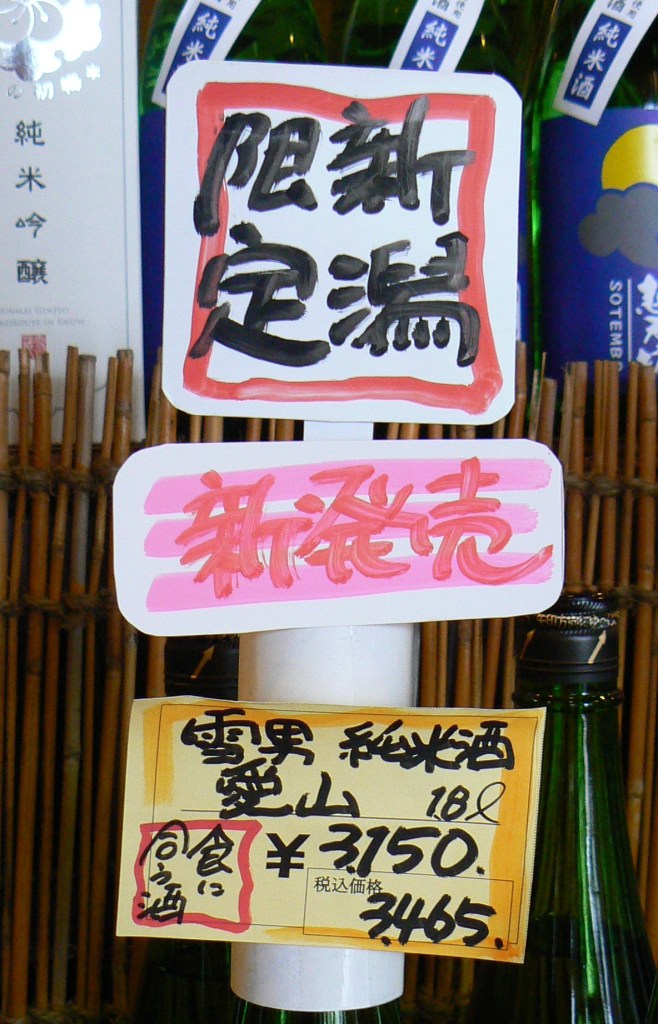 純米酒
純米酒
純米酒
純米吟醸
新潟
限定
SOTEMBO
新発売
雪男 純米酒
愛山 1.8ℓ
食に
合う酒
¥3,150.
税込価格
3,465.